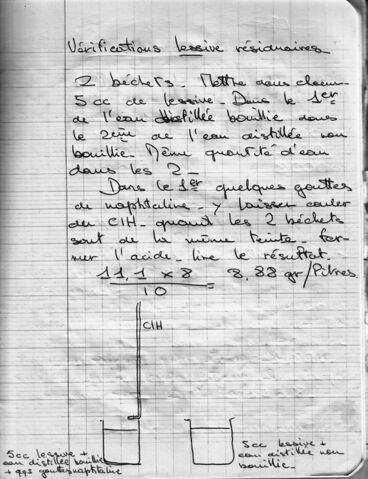 Vérifications lessive résiduaires
2 béchers. Mettre dans chacun
5cc de lessive. Dans le 1er
de l'eau distillée bouillie dans
le 2ème de l'eau distillée non
bouillie. Même quantité d'eau
dans les 2.
Dans le 1er quelques gouttes
de naphtaline. y laisser couler
du ClH. quand les 2 béchers
sont de la même teinte. fer-
mer l'acide. lire le résultat.
11,1 x 8
10
= 8,88 gr/litres.
ClH
5cc lessive +
eau distillée bouillie
+ qqs gouttes naphtaline
5cc lessive +
eau distillée non
bouillie.